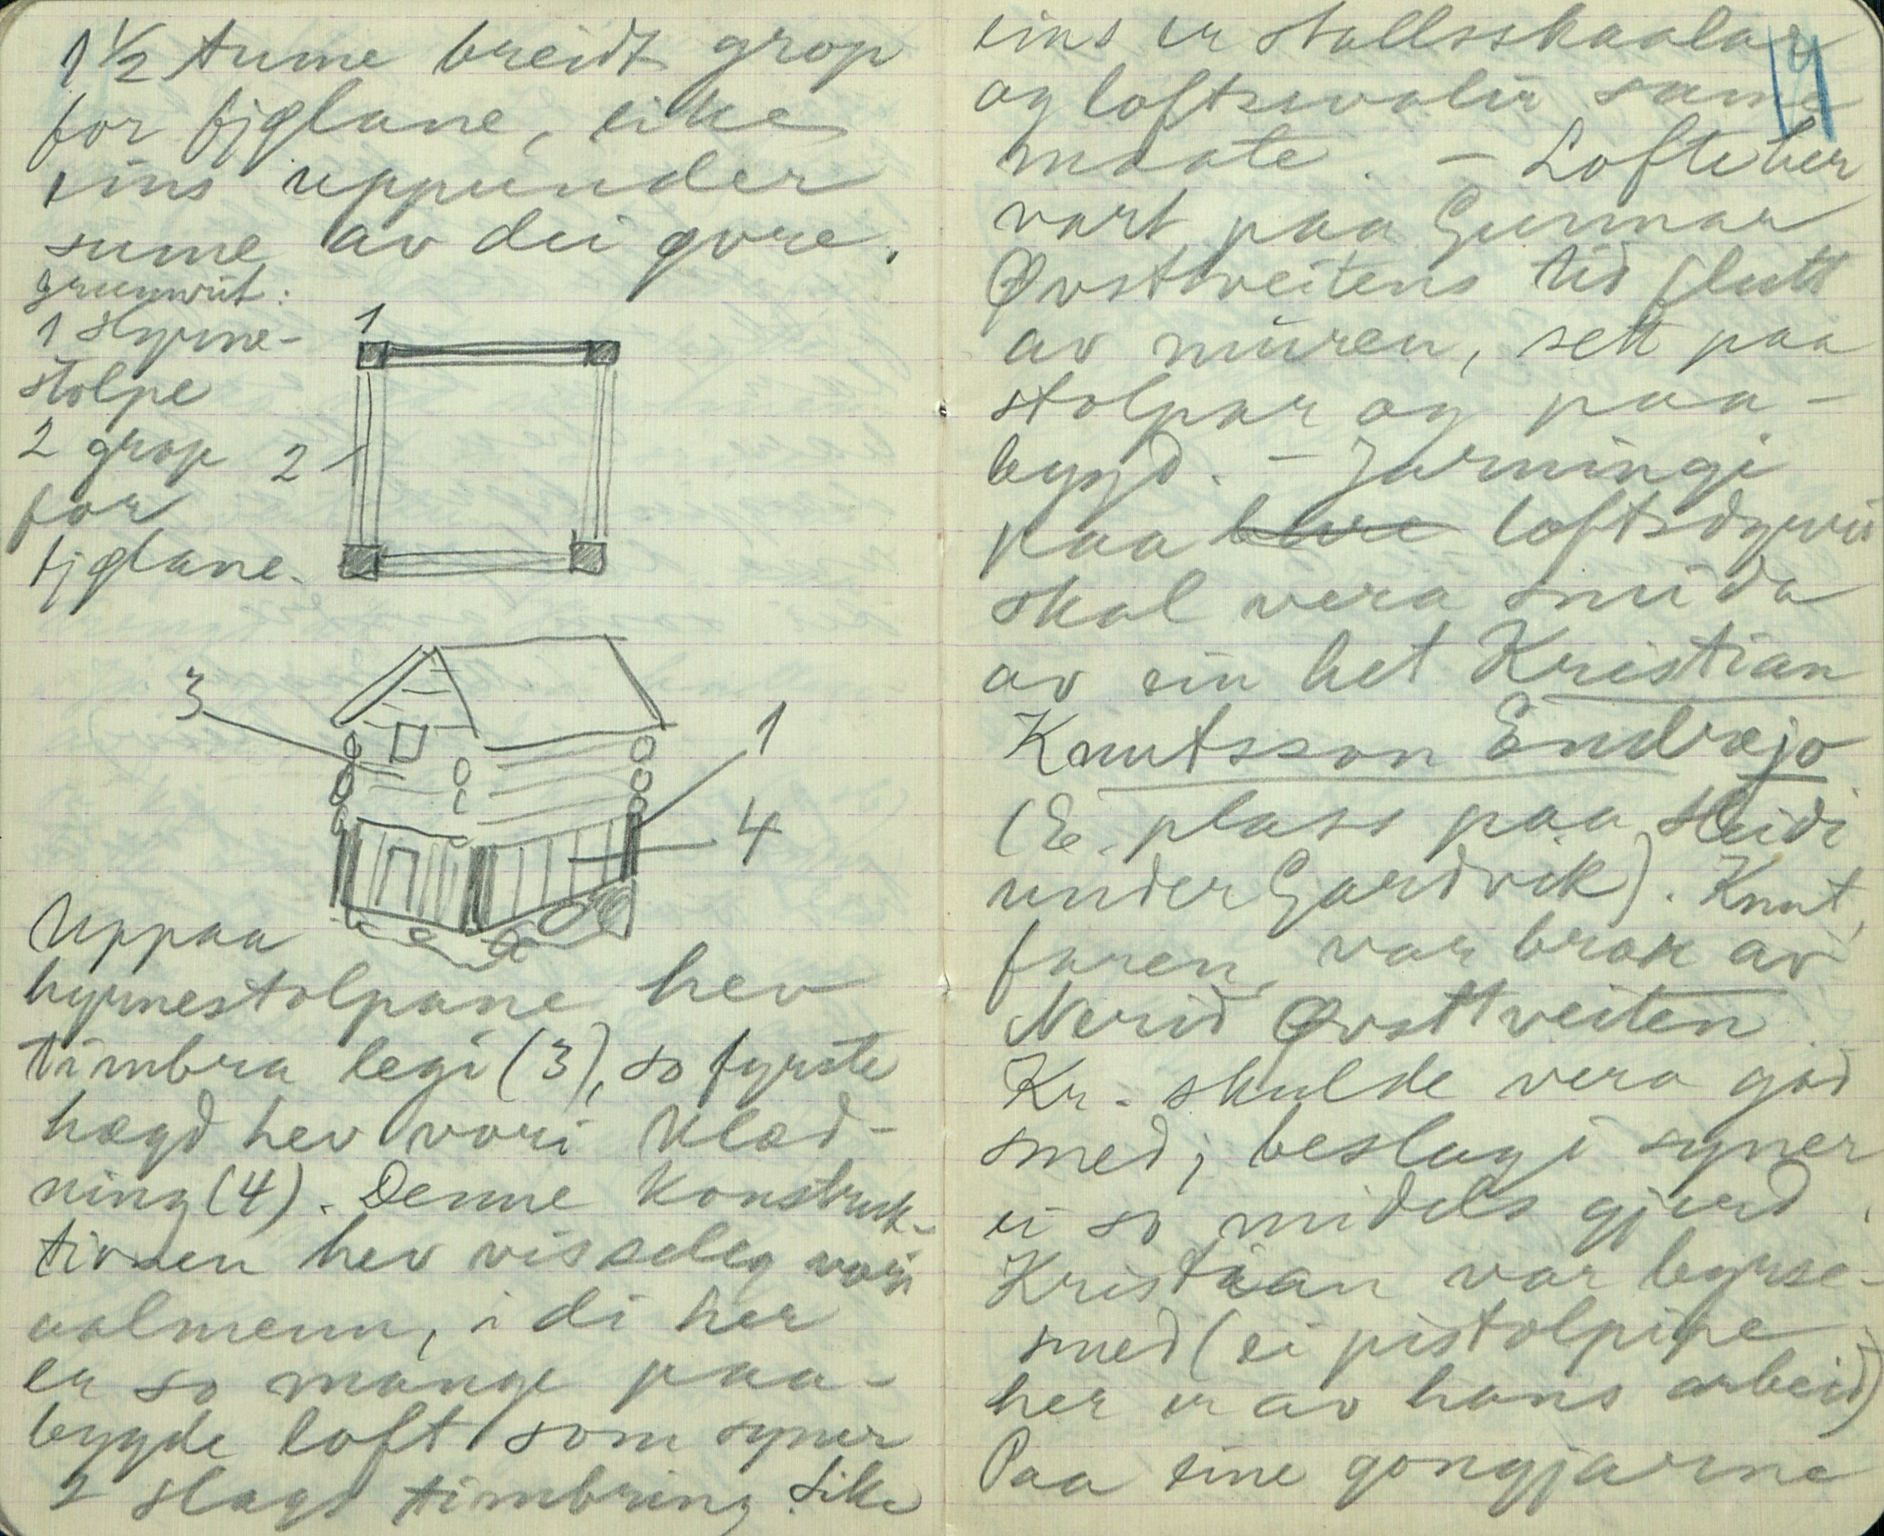 1½ tume breidt grop
for fjølane, like
eins uppunder
sume av dei øvre.
grunnrit:
1 Hyrne-
stolpe
2 grop
for
fjølane.
1
2
3
1
4
Uppaa
hyrnestolpane hev
timbra legi (3), so fyrste
høgd hev vori klæd-
ning (4). Denne konstruk-
tionen hev visseleg vori
aalmenn, i di her
er so mange paa-
bygde loft som syner
2 slags timbring. Like
14
eins er stallsskaalar
og loftssvalir same
maate. – Lofte her
vart paa Gunnar
Øvsttveitens tid flutt
av muren, sett paa
stolpar og paa-
bygd. – Jarningi
paa loftsdyrri
skal vera smida
av ein het Kristian
Knutsson Endrejo
(E. plass paa Heidi
under Gardvik). Knut,
faren, var bror av
Nerid Øvsttveiten.
Kr. skulde vera god
smed; beslagi syner
ei so midels gjerd.
Kristian var byrse-
smed (ei pistolpipe
her er av hans arbeid)
Paa eine gongjarne